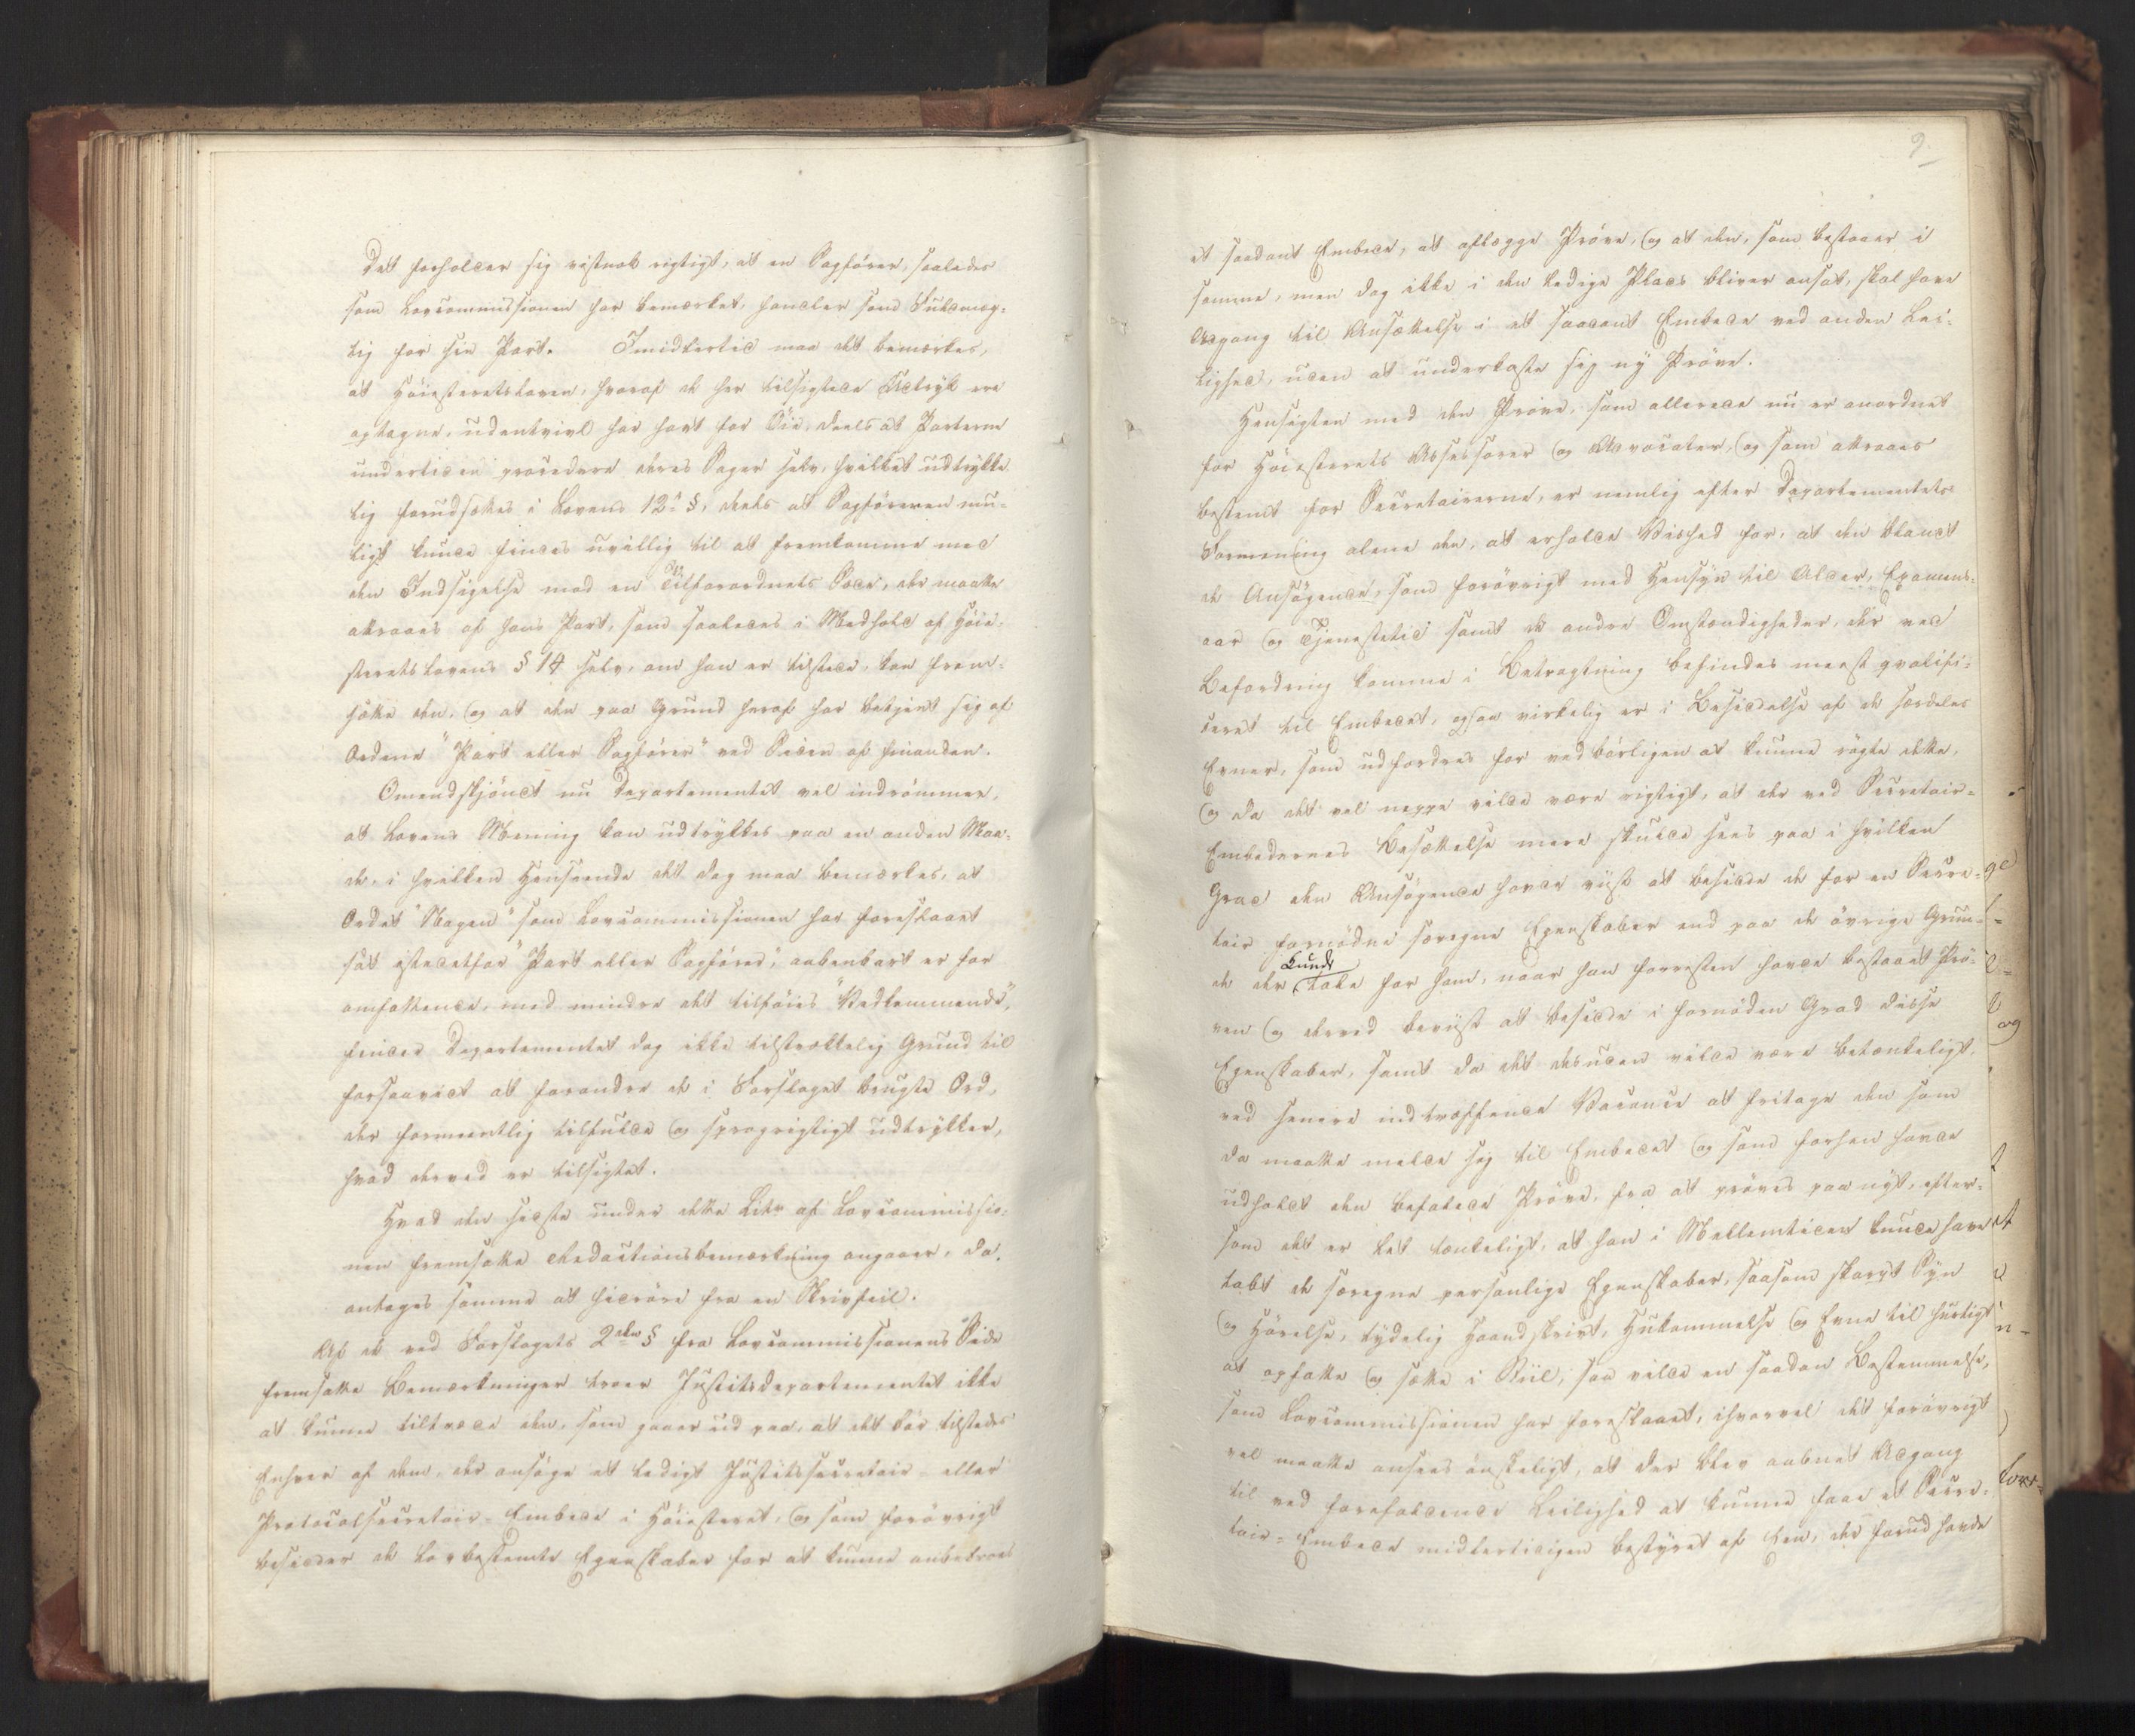 Det forholder sig vistnok rigtigt, at en Sagfører, saaledes
som Lovcommissionen har bemærket, handler som Fuldmæg-
tig for sin Part. Imidlertid maa det bemærkes,
at Høiesteretsloven, hvoraf de her tilsigtede Udtryk ere
optagne, udentvivl har havt for Øie, deels at Parterne
undertiden procedere deres Sager selv, hvilket udtrykke-
lig forudsættes i Lovens 12te §, deels at Sagføreren mu-
ligt kunde findes uvillig til at fremkomme med
den Indsigelse mod en Tilforordnets Sæde, der maatte
attraaes af hans Part, som saaledes i Medhold af Høie-
steretslovens § 14 selv, om han er tilstede, kan frem-
sætte den, og at den paa Grund heraf har betjent sig af
Ordene "Part eller Sagfører" ved Siden af hinanden.
Omendskjøndt nu Departementet vel indrømmer,
at Lovens Mening kan udtrykkes paa en anden Maa-
de, i hvilken Henseende det dog maa bemærkes, at
Ordet "Nogen" som Lovcommissionen har foreslaaet
sat istedetfor "Part eller Sagfører", aabenbart er for
omfattende, med mindre det tilføies "Vedkommende",
finder Departementet dog ikke tilstrækkelig Grund til
forsaavidt at forandre de i Forslaget brugte Ord,
der formeentlig tilfulde og sprogrigtigt udtrykker,
hvad derved er tilsigtet.
Hvad den sidste under dette Litr. af Lovcommissio-
nen fremsatte Redactionsbemærkning angaaer, da
antages samme at hidrøre fra en Skrivfeil.
Af de ved Forslagets 2den § fra Lovcommissionens Side
fremsatte Bemærkninger troer Justitsdepartementet ikke
at kunne tiltræde den, som gaaer ud paa, at det bør tilstedes
Enhver af dem, der ansøge et ledigt Justitssecretair- eller
Protocolsecretair-Embede i Høiesteret, og som forøvrigt
besidder de lovbestemte Egenskaber for at kunne anbetroes
9.
et saadant Embede, at aflægge Prøve, og at den, som bestaaer i
samme, men dog ikke i den ledige Plads bliver ansat, skal have
Adgang til Ansættelse i et saadant Embede ved anden Lei-
lighed, uden at underkaste sig ny Prøve.
Hensigten med den Prøve, som allerede nu er anordnet
for Høiesterets Assessorer og Advocater, og som attraaes
bestemt for Secretairerne, er nemlig efter Departementets
Formening alene den, at erholde Vished for, at den blandt
de Ansøgende, som forøvrigt med Hensyn til Alder, Examens-
aar og Tjenestetid samt de andre Omstændigheder, der ved
Befordring komme i Betragtning befindes meest qvalifi-
ceret til Embedet, ogsaa virkelig er i Besiddelse af de særdeles
Evner, som udfordres for vedbørligen at kunne røgte dette,
og da det vel neppe vilde være rigtigt, at der ved Secretair-
Embedernes Besættelse mere skulde sees paa i hvilken
Grad den Ansøgende havde viist at besidde de for en Secre-
tair fornødne særegne Egenskaber end paa de øvrige Grun-
de der kunde tale for ham, naar han forresten havde bestaaet Prø-
ven og derved beviist at besidde i fornøden Grad disse
Egenskaber, samt da det desuden vilde være betænkeligt,
ved senere indtræffende Vacance at fritage den som
da maatte melde sig til Embedet og som forhen havde
udholdt den befalede Prøve, fra at prøves paa nyt, efter-
som det er let tænkeligt, at han i Mellemtiden kunde have
tabt de særegne personlige Egenskaber, saasom skarpt Syn
og Hørelse, tydelig Haandskrivt, Hukommelse og Evne til hurtigt
at opfatte og sætte i Stiil, saa vilde en saadan Bestemmelse,
som Lovcommissionen har foreslaaet, ihvorvel det forøvrigt
vel maatte ansees ønskeligt, at der blev aabnet Adgang
til ved forefaldende Leilighed at kunne faae et Secre-
tair-Embede midlertidigen bestyret af Een, der forud havde